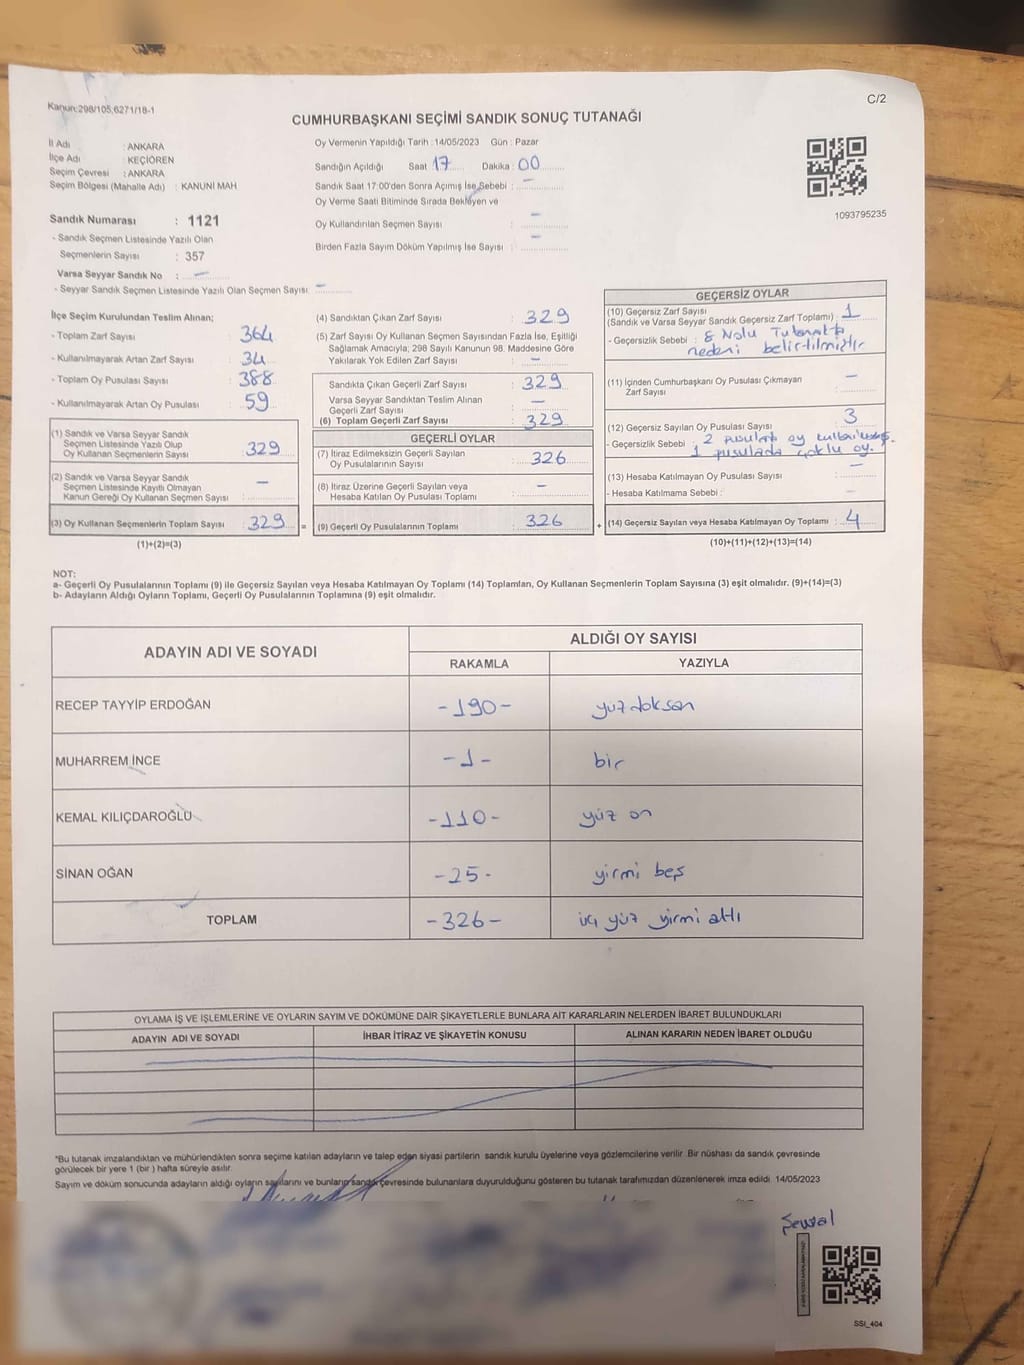 Kanun:298/105,6271/18-1
C/2
CUMHURBAŞKANI SEÇİMİ SANDIK SONUÇ TUTANAĞI
İl Adı : ANKARA
İlçe Adı : KEÇİÖREN
Seçim Çevresi : ANKARA
Seçim Bölgesi (Mahalle Adı) : KANUNİ MAH
Sandık Numarası : 1121
- Sandık Seçmen Listesinde Yazılı Olan
Seçmenlerin Sayısı : 357
Varsa Seyyar Sandık No : —
- Seyyar Sandık Seçmen Listesinde Yazılı Olan Seçmen Sayısı: —
Oy Vermenin Yapıldığı Tarih : 14/05/2023 Gün : Pazar
Sandığın Açıldığı Saat 17 Dakika : 00
Sandık Saat 17:00'den Sonra Açımış İse Sebebi : —
Oy Verme Saati Bitiminde Sırada Bekleyen ve
Oy Kullandırılan Seçmen Sayısı : —
Birden Fazla Sayım Döküm Yapılmış İse Sayısı : —
1093795235
İlçe Seçim Kurulundan Teslim Alınan;
- Toplam Zarf Sayısı : 364
- Kullanılmayarak Artan Zarf Sayısı : 34
- Toplam Oy Pusulası Sayısı : 388
- Kullanılmayarak Artan Oy Pusulası : 59
(1) Sandık ve Varsa Seyyar Sandık
Seçmen Listesinde Yazılı Olup
Oy Kullanan Seçmenlerin Sayısı : 329
(2) Sandık ve Varsa Seyyar Sandık
Seçmen Listesinde Kayıtlı Olmayan
Kanun Gereği Oy Kullanan Seçmen Sayısı : —
(3) Oy Kullanan Seçmenlerin Toplam Sayısı : 329 =
(1)+(2)=(3)
(4) Sandıktan Çıkan Zarf Sayısı : 329
(5) Zarf Sayısı Oy Kullanan Seçmen Sayısından Fazla İse, Eşitliği
Sağlamak Amacıyla; 298 Sayılı Kanunun 98. Maddesine Göre
Yakılarak Yok Edilen Zarf Sayısı : —
Sandıkta Çıkan Geçerli Zarf Sayısı : 329
Varsa Seyyar Sandıktan Teslim Alınan
Geçerli Zarf Sayısı : —
(6) Toplam Geçerli Zarf Sayısı : 329
GEÇERLİ OYLAR
(7) İtiraz Edilmeksizin Geçerli Sayılan
Oy Pusulalarının Sayısı : 326
(8) İtiraz Üzerine Geçerli Sayılan veya
Hesaba Katılan Oy Pusulası Toplamı : —
(9) Geçerli Oy Pusulalarının Toplamı : 326 +
GEÇERSİZ OYLAR
(10) Geçersiz Zarf Sayısı
(Sandık ve Varsa Seyyar Sandık Geçersiz Zarf Toplamı) : 1
- Geçersizlik Sebebi : 8 Nolu Tutanakta
nedeni belirtilmiştir
(11) İçinden Cumhurbaşkanı Oy Pusulası Çıkmayan
Zarf Sayısı : —
(12) Geçersiz Sayılan Oy Pusulası Sayısı : 3
- Geçersizlik Sebebi : 2 pusulada oy
1 pusulada çoklu oy.
(13) Hesaba Katılmayan Oy Pusulası Sayısı : —
- Hesaba Katılmama Sebebi : —
(14) Geçersiz Sayılan veya Hesaba Katılmayan Oy Toplamı : 4
(10)+(11)+(12)+(13)=(14)
NOT:
a- Geçerli Oy Pusulalarının Toplamı (9) ile Geçersiz Sayılan veya Hesaba Katılmayan Oy Toplamı (14) Toplamları, Oy Kullanan Seçmenlerin Toplam Sayısına (3) eşit olmalıdır. (9)+(14)=(3)
b- Adayların Aldığı Oyların Toplamı, Geçerli Oy Pusulalarının Toplamına (9) eşit olmalıdır.
ADAYIN ADI VE SOYADI
ALDIĞI OY SAYISI
RAKAMLA YAZIYLA
RECEP TAYYİP ERDOĞAN -190- yüz doksan
MUHARREM İNCE -1- bir
KEMAL KILIÇDAROĞLU -110- yüz on
SİNAN OĞAN -25- yirmi beş
TOPLAM -326- üç yüz yirmi altı
OYLAMA İŞ VE İŞLEMLERİNE VE OYLARIN SAYIM VE DÖKÜMÜNE DAİR ŞİKAYETLERLE BUNLARA AİT KARARLARIN NELERDEN İBARET BULUNDUKLARI
ADAYIN ADI VE SOYADI İHBAR İTİRAZ VE ŞİKAYETİN KONUSU ALINAN KARARIN NEDEN İBARET OLDUĞU
*Bu tutanak imzalandıktan ve mühürlendikten sonra seçime katılan adayların ve talep eden siyasi partilerin sandık kurulu üyelerine veya gözlemcilerine verilir. Bir nüshası da sandık çevresinde
görülecek bir yere 1 (bir ) hafta süreyle asılır.
Sayım ve döküm sonucunda adayların aldığı oyların sayılarını ve bunların sandık çevresinde bulunanlara duyurulduğunu gösteren bu tutanak tarafımızdan düzenlenerek imza edildi. 14/05/2023
SSI_404